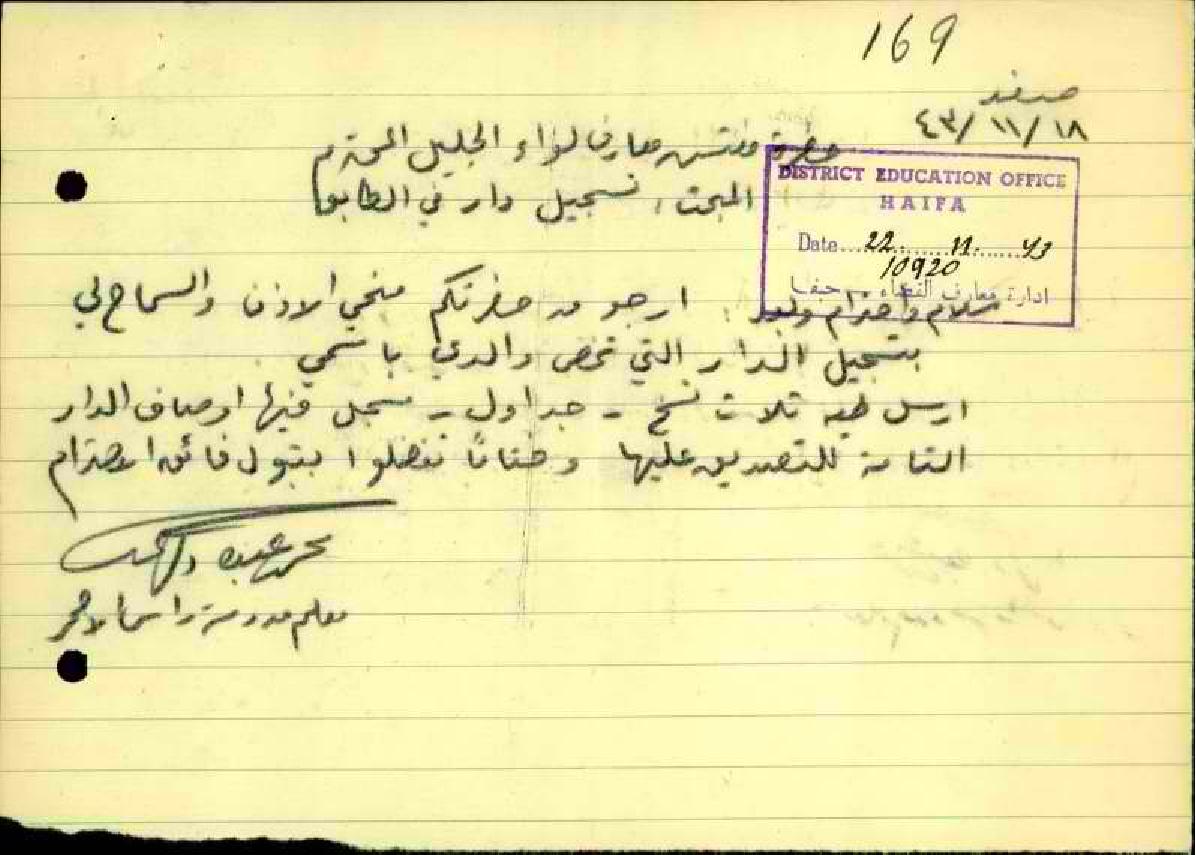 169
صفد
١٨/١١/٤٣
حضرة مفتش معارف لواء الجليل المحترم
المبحث: تسجيل دار في الطابو
DISTRICT EDUCATION OFFICE
HAIFA
Date 22. 11. 43
10920
ادارة معارف القضاء - حيفا
سلام واحترام وبعد . ارجو من حضرتكم منحي الاذن والسماح لي
بتسجيل الدار التي تخص والدي باسمي
ارسل طيه ثلاث نسخ - جداول - مسجل فيها اوصاف الدار
التامة للتصديق عليها وختاماً تفضلوا بقبول فائق الاحترام
معلم مدرسة راس الاحمر